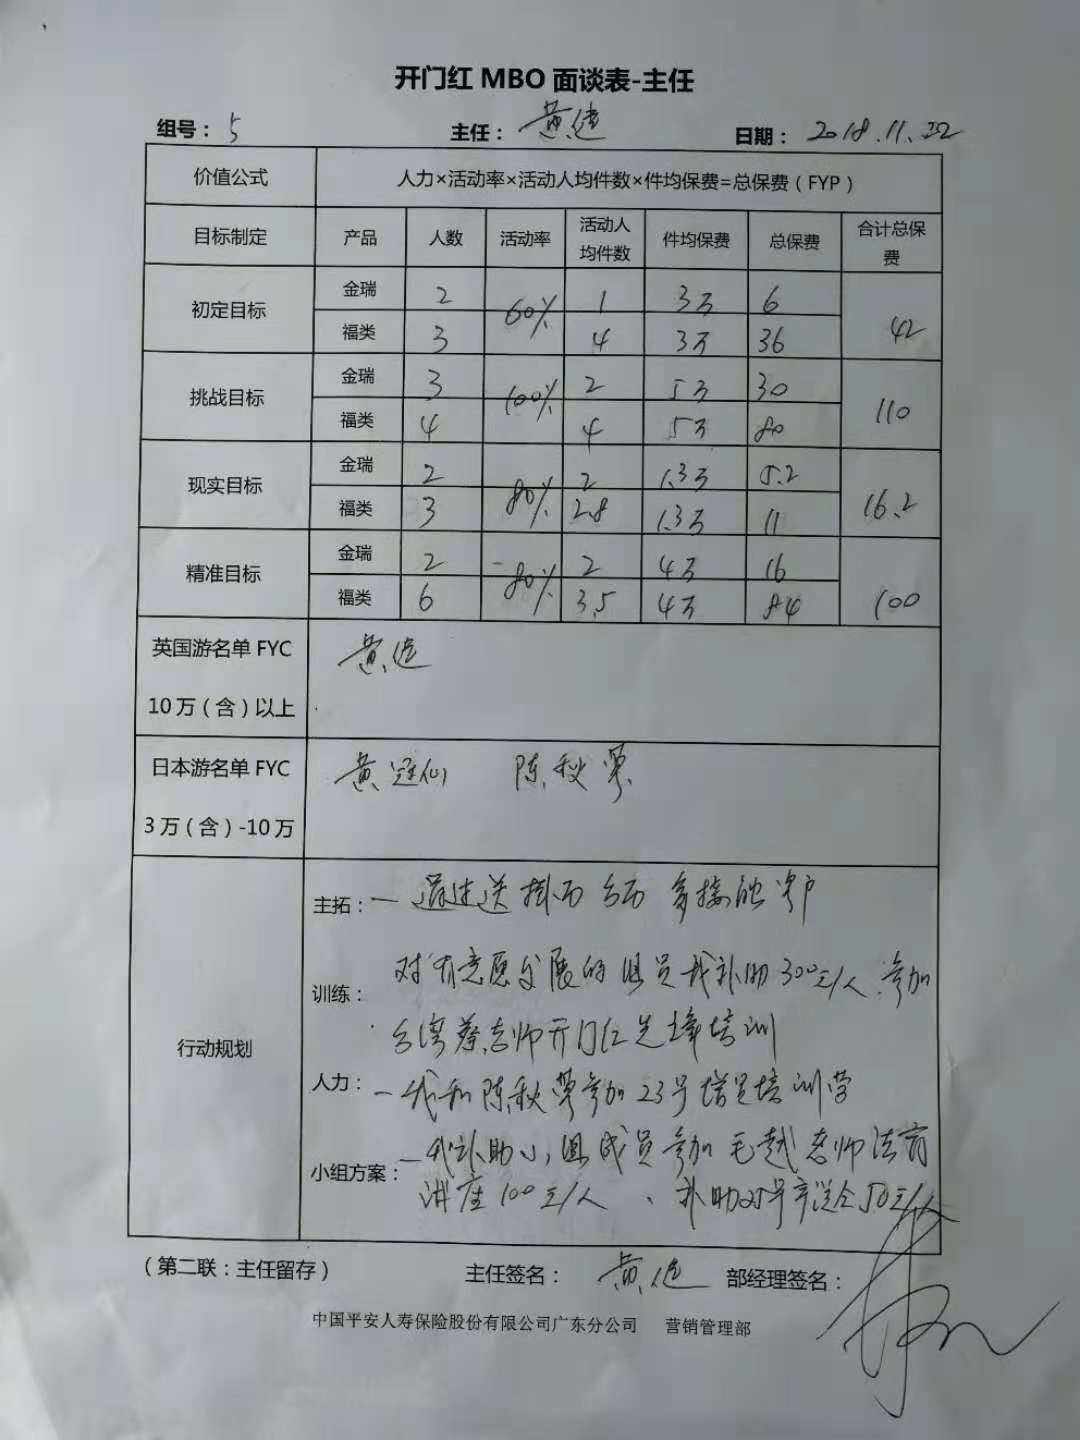 开门红 MBO 面谈表-主任
组号：5 主任：黄 日期：2018.11.22
价值公式 人力×活动率×活动人均件数×件均保费=总保费（FYP）
目标制定 产品 人数 活动率 活动人均件数 件均保费 总保费 合计总保费
初定目标 金瑞 2 60% 1 3万 6 42
福类 3 4 3万 36
挑战目标 金瑞 3 100% 2 5万 30 110
福类 4 4 5万 80
现实目标 金瑞 2 80% 2 1.3万 5.2 16.2
福类 3 2.8 1.3万 11
精准目标 金瑞 2 80% 2 4万 16 100
福类 6 3.5 4万 84
英国游名单 FYC
10万（含）以上
黄
日本游名单 FYC
3万（含）-10万
黄冠仙 陈秋
行动规划
主拓：一 通过送挂历 台历 多接触客户
训练：对有意愿发展的组员我补助300元/人.参加
台湾蔡老师开门红先锋培训
人力：一我和陈秋 参加23号增员培训营
小组方案：一我补助小组成员参加毛越老师法商
讲座100元/人、补助25号 50元/人
（第二联：主任留存） 主任签名：黄 部经理签名：
中国平安人寿保险股份有限公司广东分公司 营销管理部